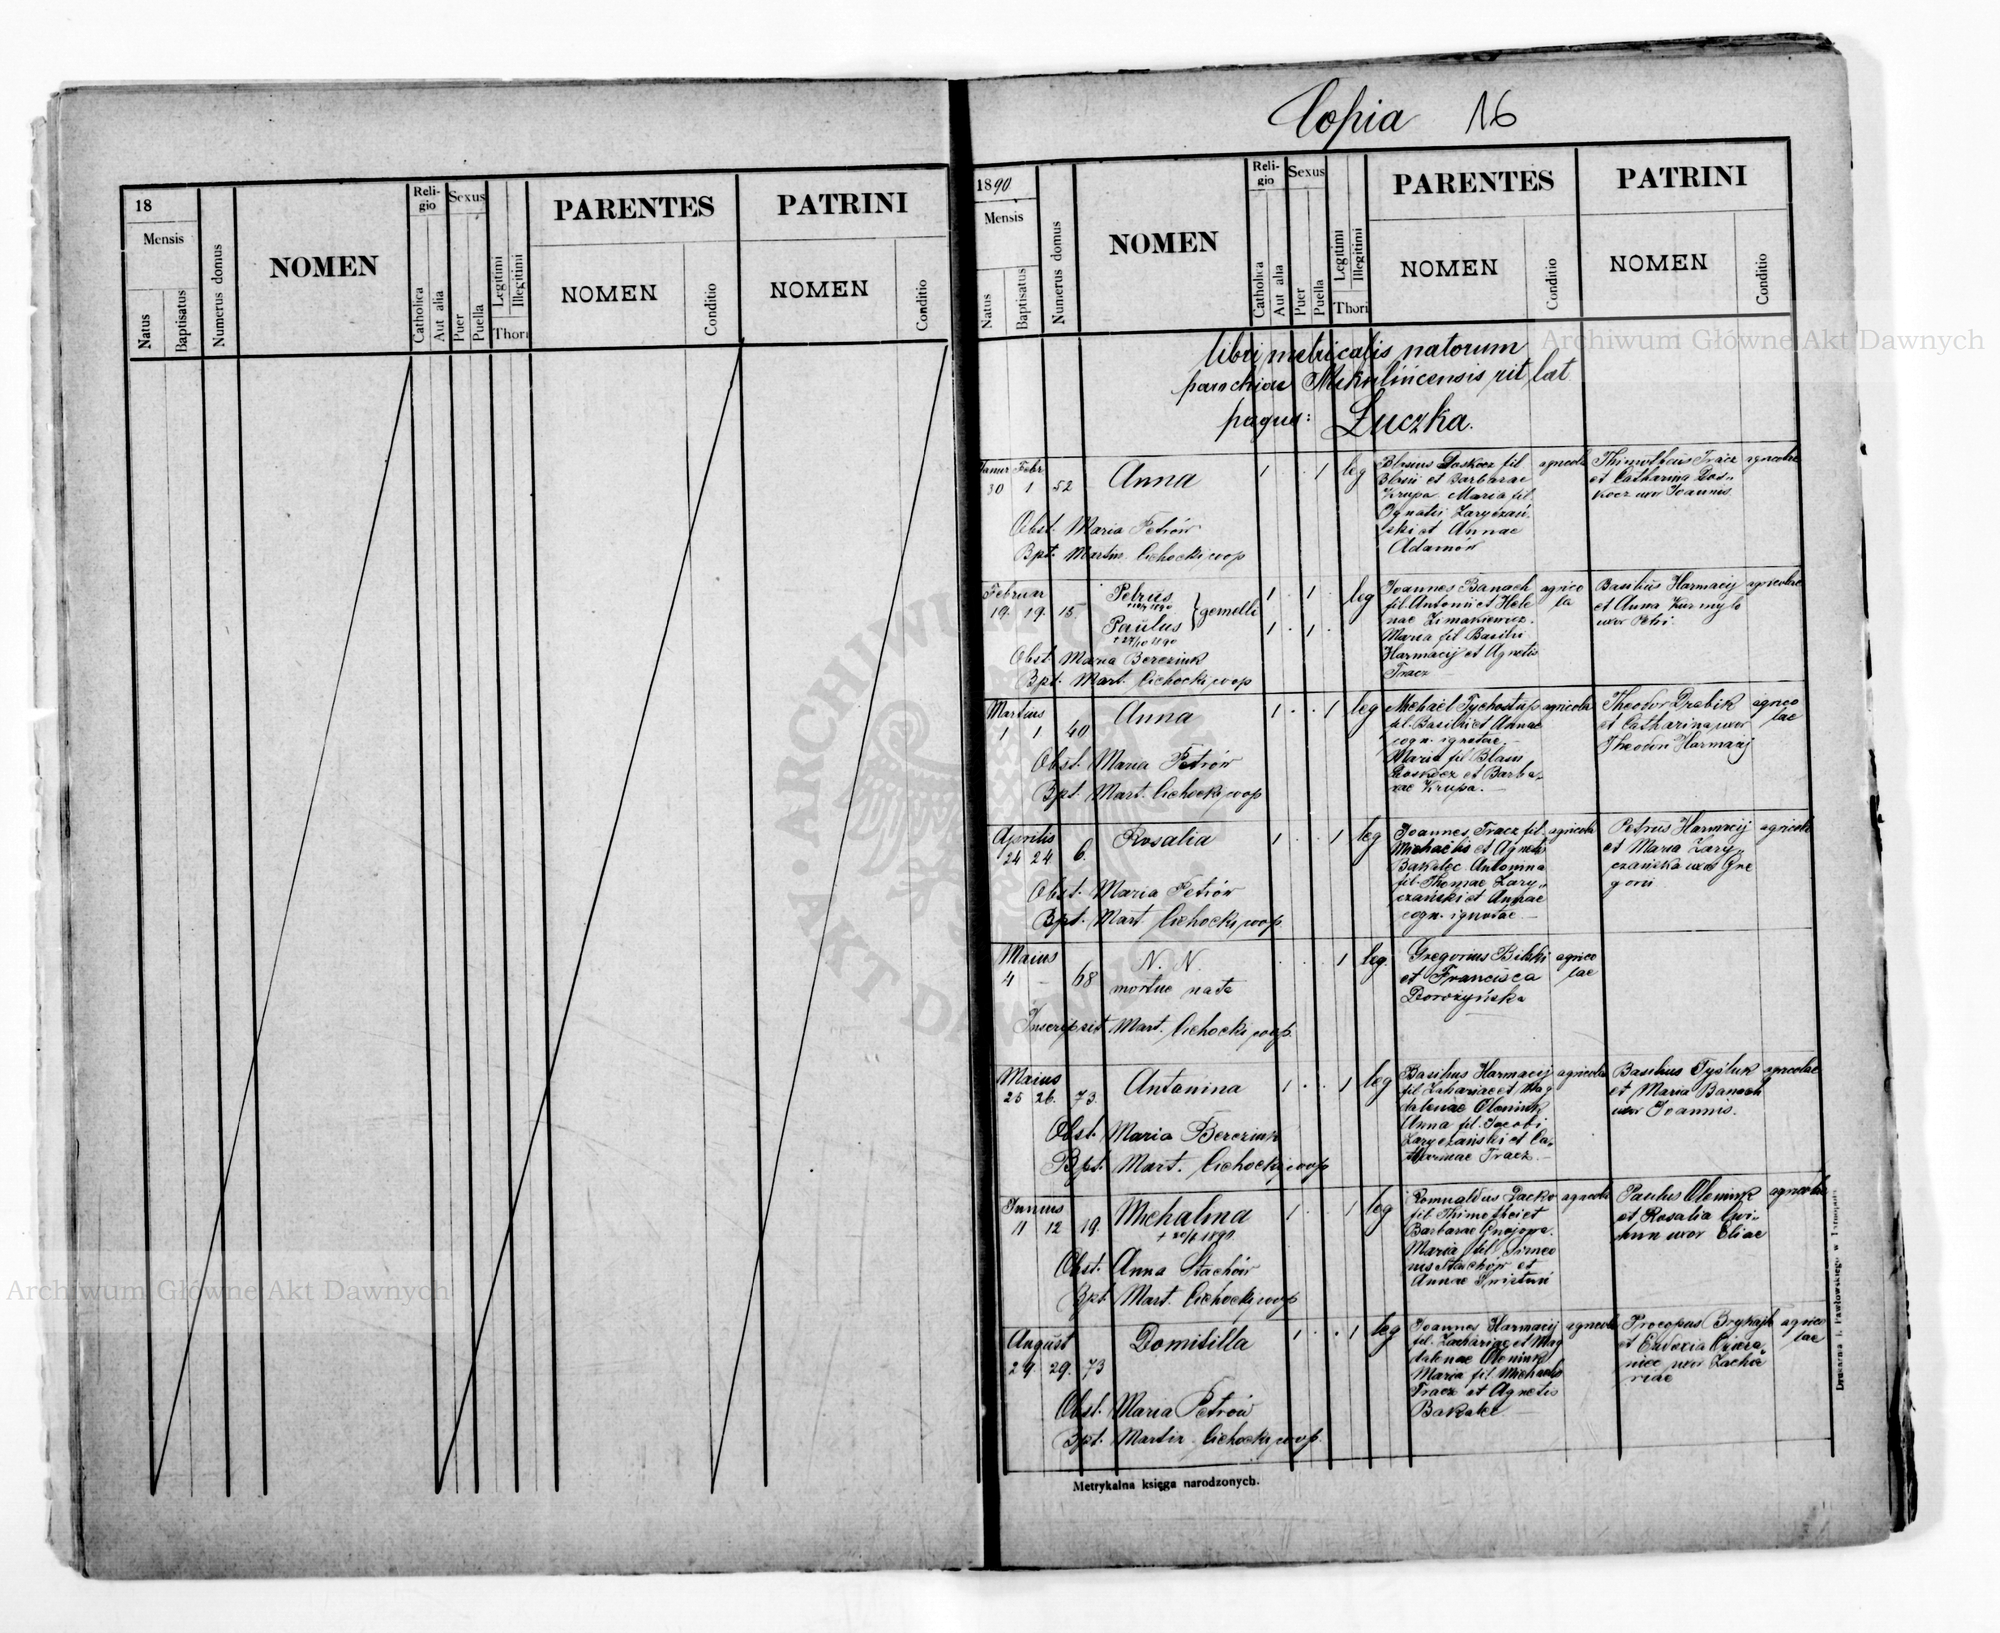 Copia 16
18
Mensis
Natus
Baptisatus
Numerus domus
NOMEN
Religio
Catholica
Aut alia
Sexus
Puer
Puella
Legitimi
Illegitimi
Thori
PARENTES
NOMEN
Conditio
PATRINI
NOMEN
Conditio
1890
Mensis
Natus
Baptisatus
Numerus domus
NOMEN
Religio
Catholica
Aut alia
Sexus
Puer
Puella
Legitimi
Illegitimi
Thori
PARENTES
NOMEN
Conditio
PATRINI
NOMEN
Conditio
libri metricalis natorum
parochiae Mikulińcensis rit lat
pagus: Łuczka.
Januar Febr
30 1 52 Anna 1 1 leg
Blasius Doskocz fil agricola
Blasii et Barbarae
Krupa Maria fil.
Ignatii Zaryczań
ski et Annae
Adamów
Thimotheus Tracz agricolae
et Catharina Dos
kocz uxor Joannis
Obst. Maria Petrów
Bpt. Martin Cichocki coop
Februar
19. 19. 15. Petrus 1 . 1 . leg
Paulus gemelli 1 . 1
+ 27/10 1890
Joannes Banach agrico
fil. Antonii et Hele la
nae Zimakiewicz.
Maria fil Basilii
Harmacij et Agnetis
Tracz
Basilius Harmacij agricolae
et Anna Kurmylo
uxor Petri
Obst Maria Bereziuk
Bpt. Mart. Cichocki coop
Martius
1 1 40 Anna 1 . . 1 leg
Michael Tychostup agricola
fil. Basilii et Annae
cogn. ignotae.
Maria fil Blasii
Doskocz et Barba
rae Krupa.
Theodor Drabik agrico
et Catharina uxor lae
Theodori Harmacij
Obst. Maria Petrów
Bpt. Mart. Cichocki coop
Aprilis
24 24 6. Rosalia 1 . . 1 leg
Joannes Tracz fil. agricola
Michaelis et Agnetis
Bakalec Antonina
fil. Thomae Zary
czański et Annae
cogn. ignotae
Petrus Harmacij agricolae
et Maria Zary
czańska uxor Gre
gorii
Obst. Maria Petrów
Bpt. Mart. Cichocki coop
Maius
4 - 68 N. N. . . . 1 leg.
mortue nata
Gregorius Bilski agrico
et Francisca lae
Dorożyńska
Inscripsit Mart. Cichocki coop.
Maius
25 26. 73. Antonina 1 . . 1 leg
Basilius Harmacij agricola
fil. Zahariae et Mag
dalenae Oleniuk
Anna fil. Jacobi
Zaryczański et Ca
tharinae Tracz.
Basilius Tyśluk agricolae
et Maria Banach
uxor Joannis.
Obst. Maria Bereziuk
Bpt. Mart. Cichocki coop
Junius
11 12 19. Michalina 1 . 1 leg
Romualdus Dacko agricola
fil. Thimothei et
Barbarae
Maria fil Simeo
nis Stachow et
Annae
Paulus Oleniuk agricolae
et Rosalia
uxor Eliae
Obst. Anna Stachów
Bpt Mart. Cichocki coop
August
29 29. 73 Domisilla 1 . . 1 leg
Joannes Harmacij agricola
fil. Zachariae et Mag
dalenae Oleniuk
Maria fil Michaelis
Tracz et Agnetis
Bakalec
Procopus agrico
et Eudoxia lae
uxor Zacha
riae
Obst. Maria Petrów
Bpt. Martin Cichocki coop.
Metrykalna księga narodzonych.
Drukarnia J. Pawłowskiego w Tarnopolu
Archiwum Główne Akt Dawnych
Archiwum Główne Akt Dawnych